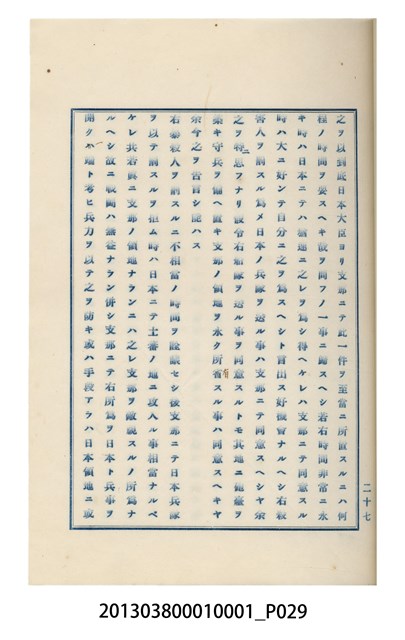 之ヲ以到底日本大臣ヨリ支那ニテ此一件ヲ至當ニ所置スルニハ何
程ノ時間ヲ要スヘキ歟ヲ問フノ一事ニ歸スヘシ若右時間非常ニ永
キ時ハ日本ニテハ無遠ニ之レヲ爲シ得ヘケレハ支那ニテ同意スル
時ハ大ニ好シテ自分ニ之ヲ爲スヘシト言出ス好機會ナルヘシ右殺
害人ヲ罰スル爲メ日本ノ兵隊ヲ送ル事ハ支那ニテ同意スヘシヤ余
之ヲ特意ニナリ設令右組隊ヲ送ル事ヲ同意スルトモ其地ニ砲臺ヲ
築キ守兵ヲ備ヘ置キ支那ノ領地ヲ永ク所有スル事ハ同意スヘキヤ
余今之ヲ告言シ能ハス
右暴殺人ヲ罰スルニ不相當ノ時間ヲ遷延セシ後支那ニテ日本兵隊
ヲ以テ罰スルヲ拒ム時ハ日本ニテ土蕃ノ地ニ攻入ル事相當ナルヘ
ケレ共若眞ニ支那ノ領地ナランニハ之レ支那ヲ敵視スルノ所爲ナ
ルヘシ故ニ戰鬪ハ無益ナラン併シ支那ニテ右所爲ヲ日本ト兵事ヲ
開ク端ト考ヒ兵力ヲ以テ之ヲ防キ或ハ手段アラハ日本領地ニ或
二十七
201303800010001_P029